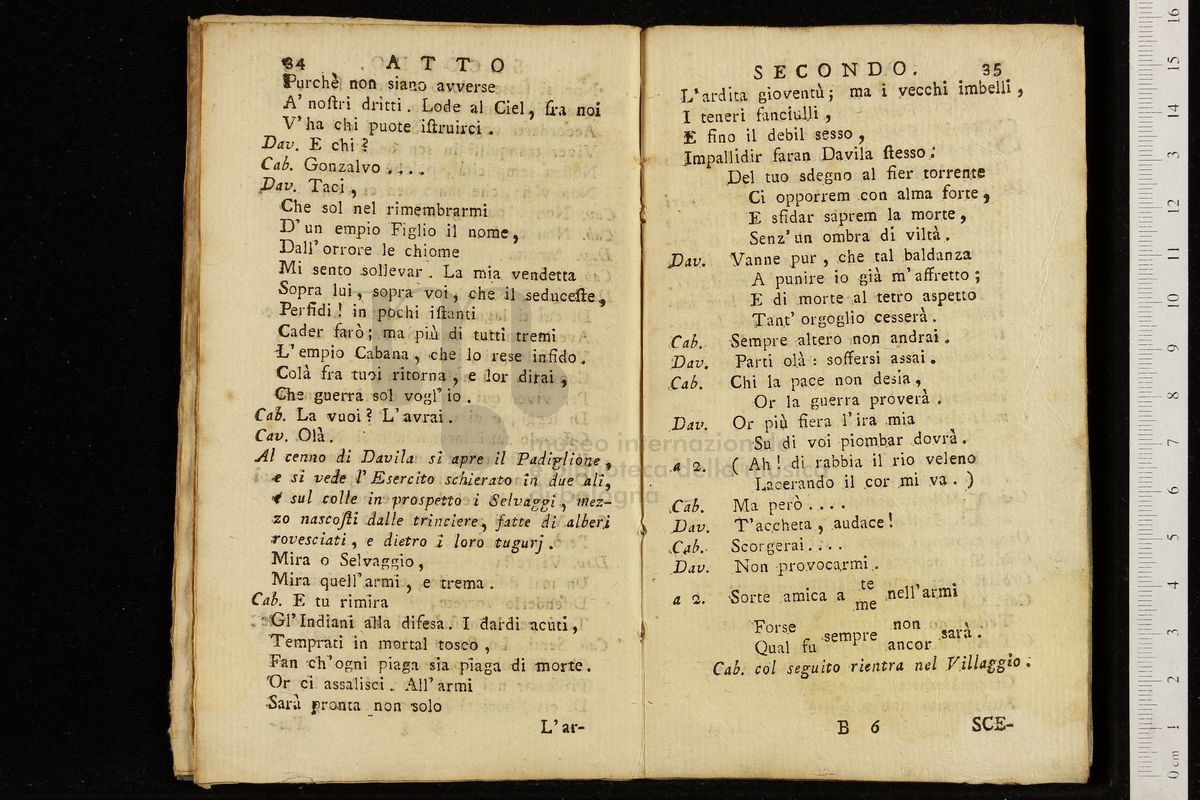 34 ATTO
Purchè non siano avverse
A' noſtri dritti. Lode al Ciel, fra noi
V'ha chi puote iſtruirci.
Dav. E chi?
Cab. Gonzalvo....
Dav. Taci,
Che sol nel rimembrarmi
D'un empio Figlio il nome,
Dall'orrore le chiome
Mi sento sollevar. La mia vendetta
Sopra lui, sopra voi, che il seduceſte,
Perfidi! in pochi iſtanti
Cader farò; ma più di tutti tremi
L'empio Cabana, che lo rese infido.
Colà fra tuoi ritorna, e lor dirai,
Che guerra sol vogl'io.
Cab. La vuoi? L'avrai.
Cav. Olà.
Al cenno di Davila si apre il Padiglione,
e si vede l'Esercito schierato in due ali,
e sul colle in prospetto i Selvaggi, mez-
zo nascoſti dalle trinciere, fatte di alberi
rovesciati, e dietro i loro tugurj.
Mira o Selvaggio,
Mira quell'armi, e trema.
Cab. E tu rimira
Gl'Indiani alla difesa. I dardi acuti,
Temprati in mortal tosco,
Fan ch'ogni piaga sia piaga di morte.
Or ci assalisci. All'armi
Sarà pronta non solo
L'ar-
SECONDO. 35
L'ardita gioventù; ma i vecchi imbelli,
I teneri fanciulli,
E fino il debil sesso,
Impallidir faran Davila ſtesso:
Del tuo sdegno al fier torrente
Ci opporrem con alma forte,
E sfidar saprem la morte,
Senz'un ombra di viltà.
Dav. Vanne pur, che tal baldanza
A punire io già m'affretto;
E di morte al tetro aspetto
Tant'orgoglio cesserà.
Cab. Sempre altero non andrai.
Dav. Parti olà: soffersi assai.
Cab. Chi la pace non desia,
Or la guerra proverà.
Dav. Or più fiera l'ira mia
Su di voi piombar dovrà.
a 2. (Ah! di rabbia il rio veleno
Lacerando il cor mi va.)
Cab. Ma però....
Dav. T'accheta, audace!
Cab. Scorgerai....
Dav. Non provocarmi.
a 2. Sorte amica a te me nell'armi
Forse non
sempre sarà.
Qual fu ancor
Cab. col seguito rientra nel Villaggio.
B 6 SCE-
museo internazionale
e biblioteca della musica
bologna